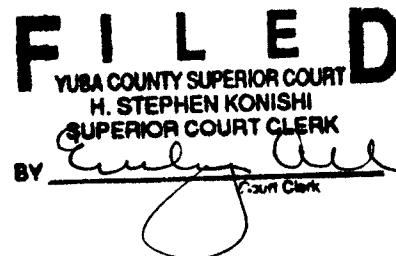 FILED
YUBA COUNTY SUPERIOR COURT
H. STEPHEN KONISHI
SUPERIOR COURT CLERK
BY
Court Clerk